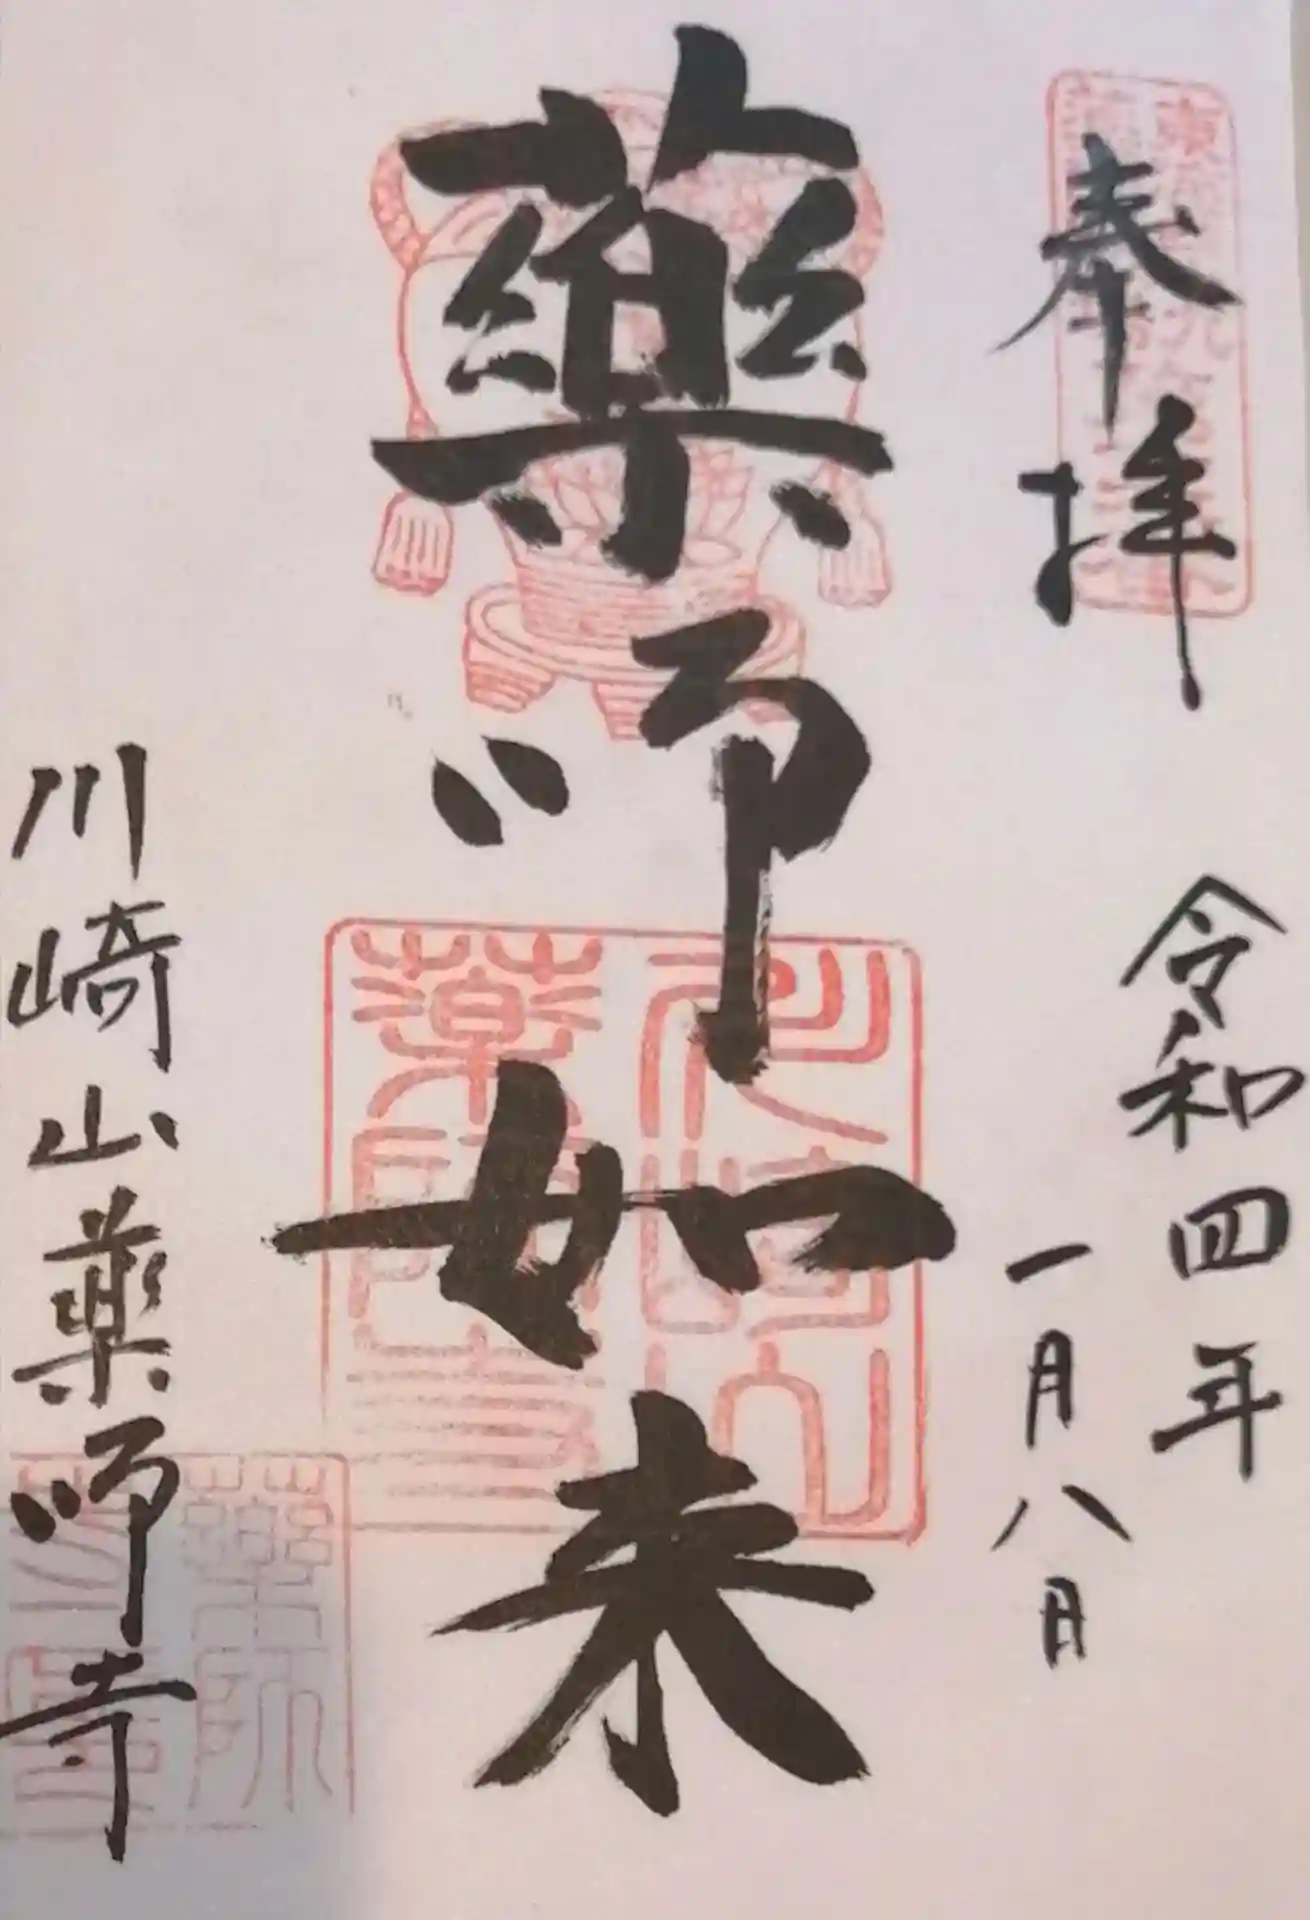 奉拝
令和四年
一月八日
薬師如来
川崎山薬師寺